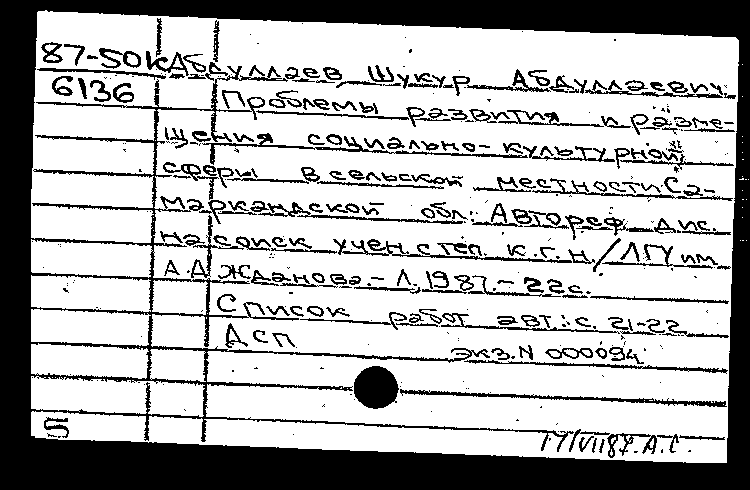 87-50к Абдуллаев, Шукур Абдуллаевич.
6136 Проблемы развития и разме-
щения социально-культурной
сферы в сельской местности Са-
маркандской обл.: Автореф. дис.
на соиск. учен. степ. к.г.н./ЛГУ им.
А.А. Жданова.-Л., 1987.-22с.
Список работ авт.: с. 21-22
ДСП экз. N 000094
5 17/VII87. А.С.